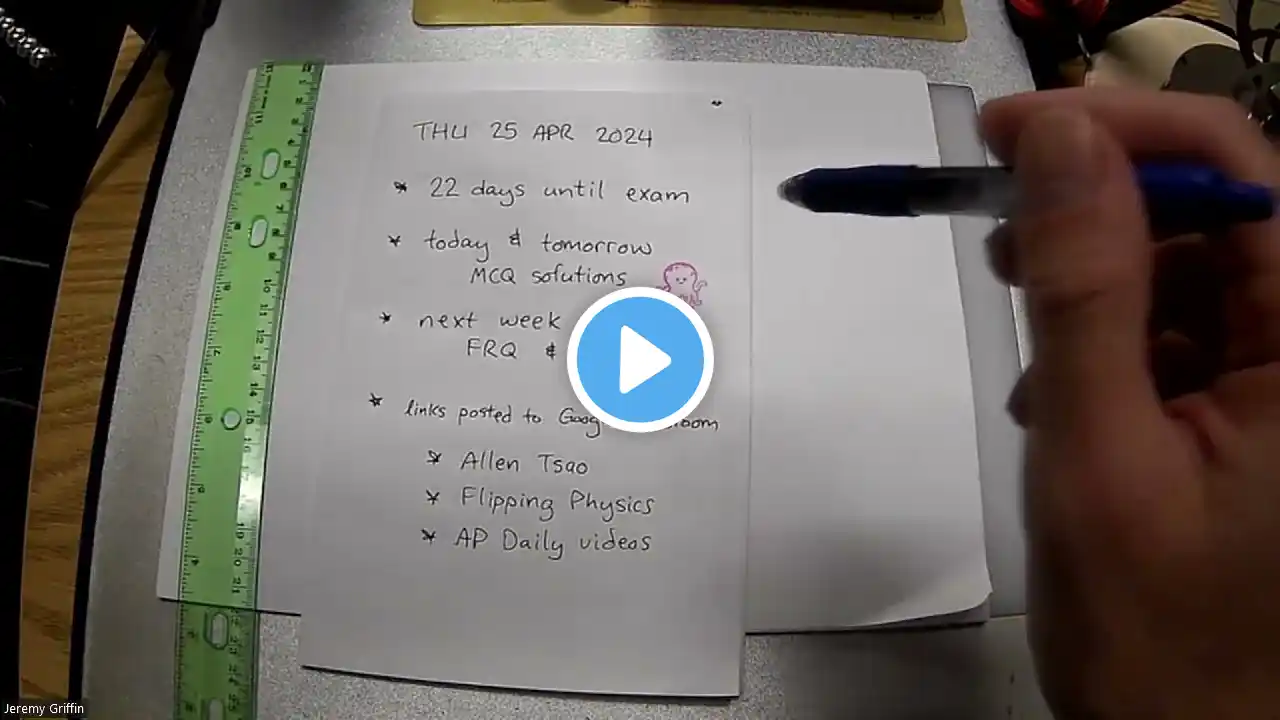 THU 25 APR 2024
* 22 days until exam
* today & tomorrow
MCQ solutions
* next week
FRQ &
* links posted to
* Allen Tsao
* Flipping Physics
* AP Daily videos
Jeremy Griffin